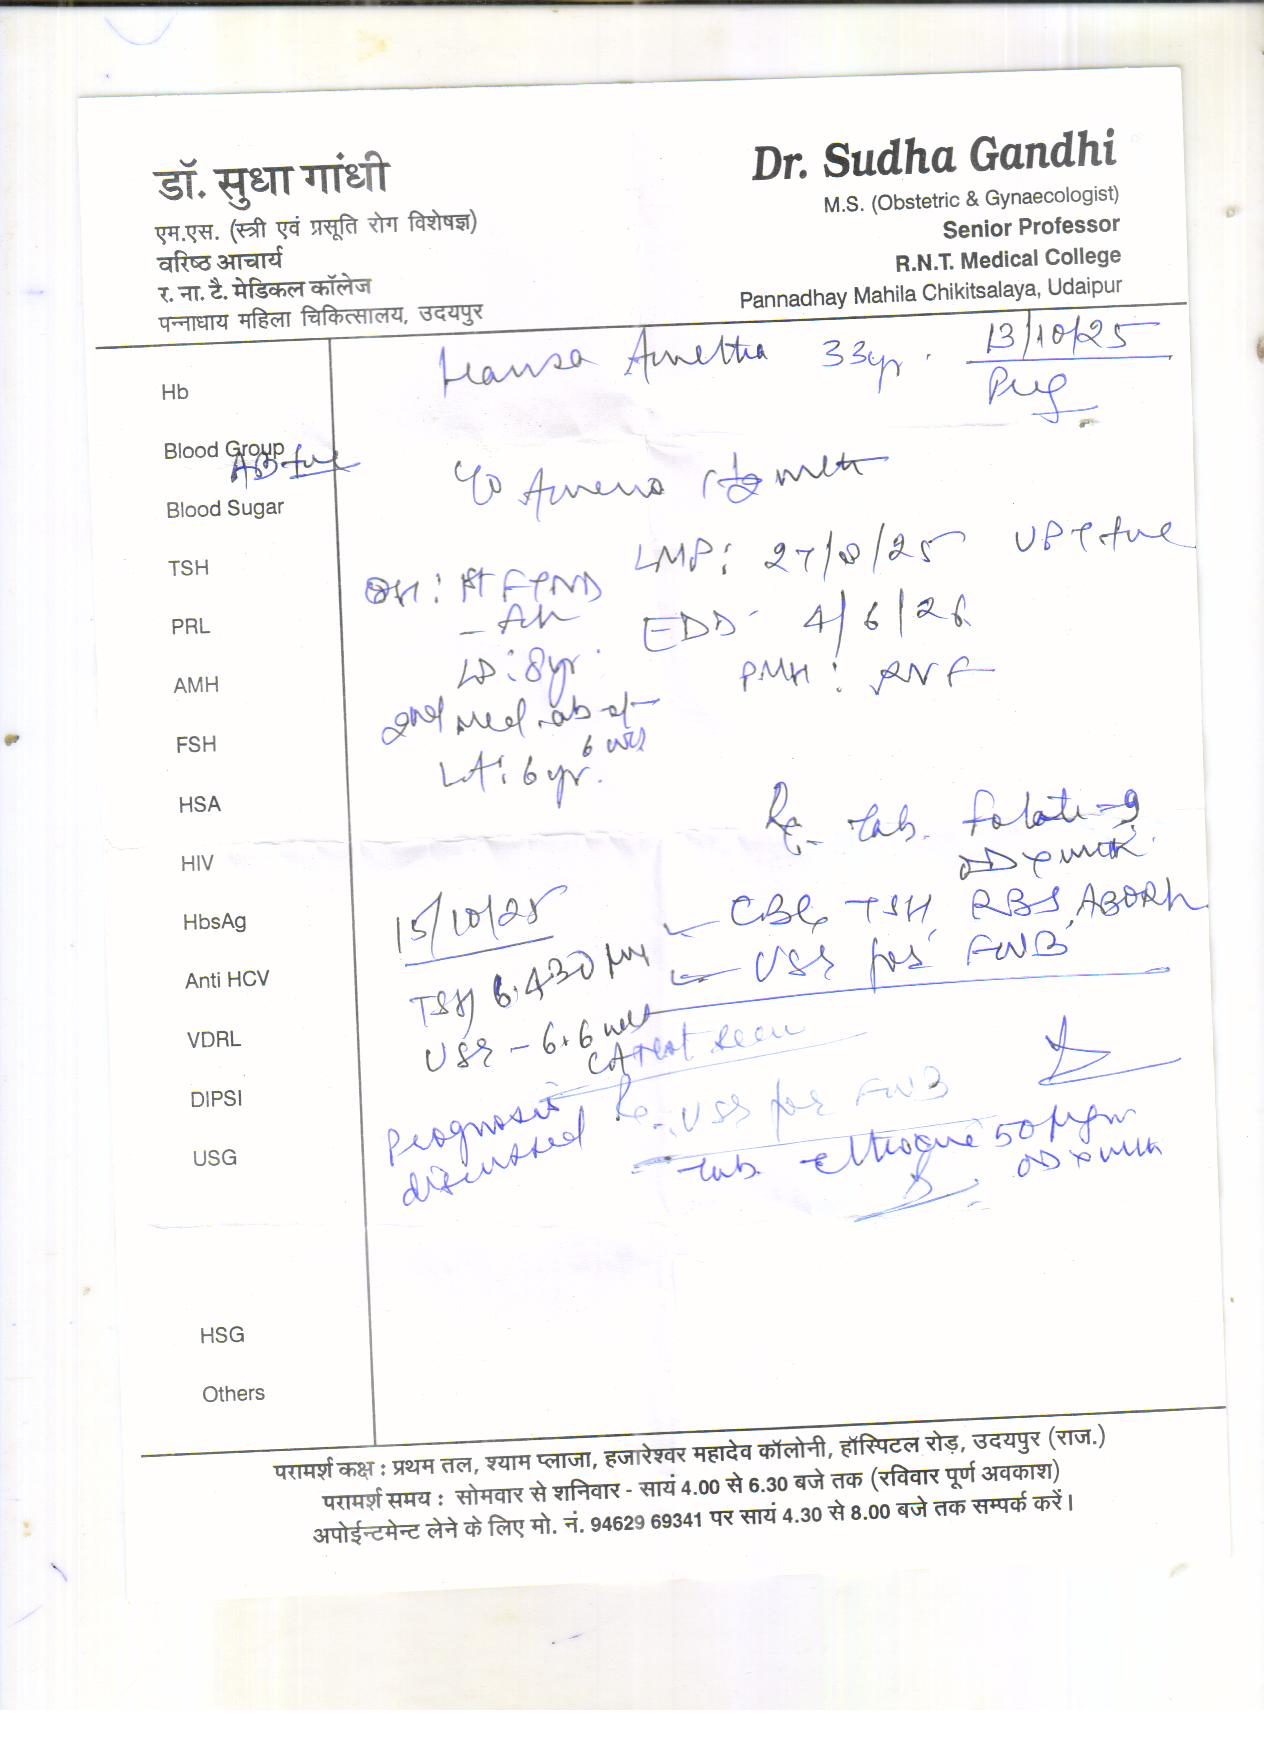 डॉ. सुधा गांधी
एम.एस. (स्त्री एवं प्रसूति रोग विशेषज्ञ)
वरिष्ठ आचार्य
र. ना. टै. मेडिकल कॉलेज
पन्नाधाय महिला चिकित्सालय, उदयपुर
Dr. Sudha Gandhi
M.S. (Obstetric & Gynaecologist)
Senior Professor
R.N.T. Medical College
Pannadhay Mahila Chikitsalaya, Udaipur
Hb
Blood Group
Blood Sugar
TSH
PRL
AMH
FSH
HSA
HIV
HbsAg
Anti HCV
VDRL
DIPSI
USG
HSG
Others
Hansa Ametha 33yr. 13/10/25
c/o Ameno 1½ mth
LMP: 27/8/25 UPT +ve
OH: 1st FTND
EDD 4/6/26
LD: 8yr.
PMH:
2nd Med. ab at
6 wks
LA: 6yr.
Rx Tab. Folate-9
OD x mth
15/10/25
CBC, TSH, RBS, ABORh
USG for FWB
TSH 6.430
USG - 6.6 week
CA not seen
Prognosis
discussed
Rx USG for FWB
Tab. 50 µgm
OD x mth
परामर्श कक्ष : प्रथम तल, श्याम प्लाजा, हजारेश्वर महादेव कॉलोनी, हॉस्पिटल रोड़, उदयपुर (राज.)
परामर्श समय : सोमवार से शनिवार - सायं 4.00 से 6.30 बजे तक (रविवार पूर्ण अवकाश)
अपोईन्टमेन्ट लेने के लिए मो. नं. 94629 69341 पर सायं 4.30 से 8.00 बजे तक सम्पर्क करें।